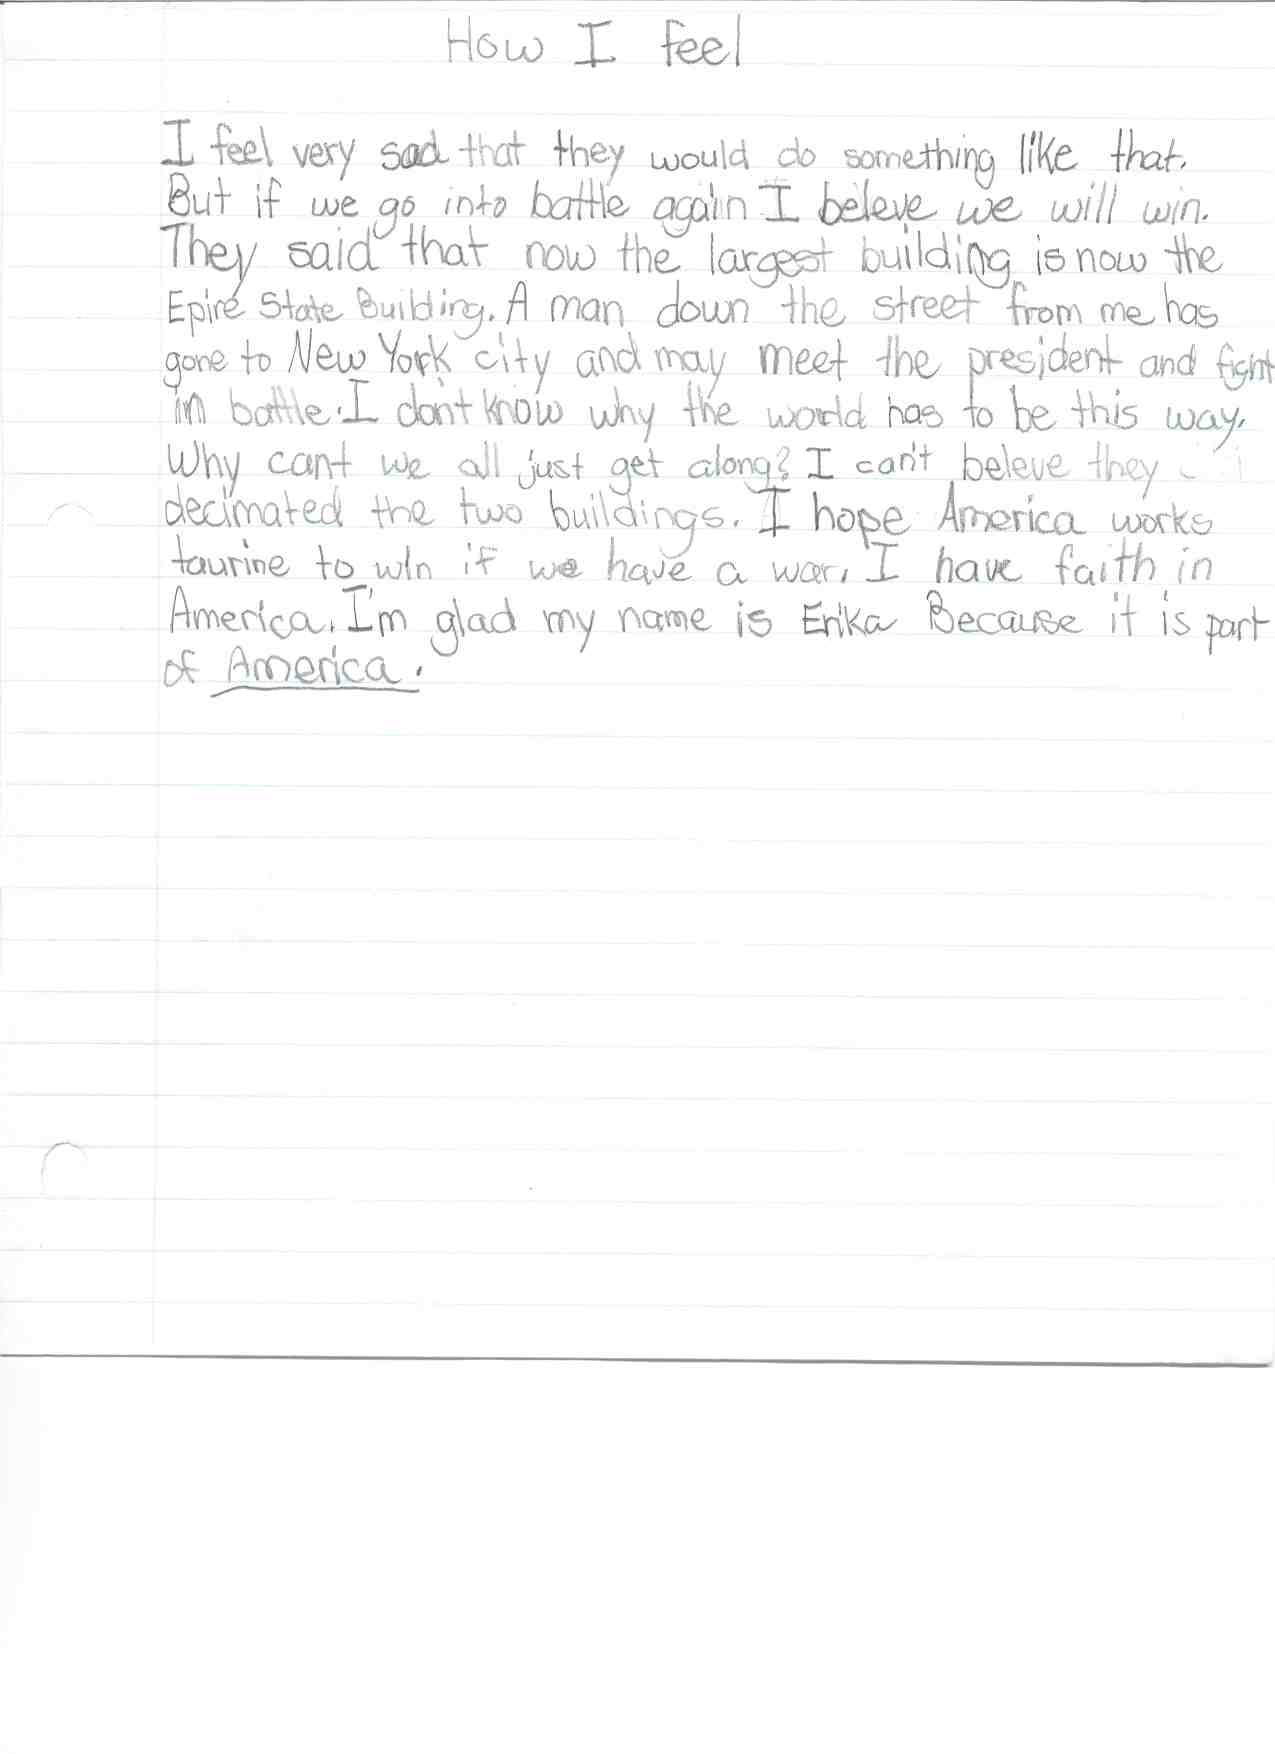 How I feel
I feel very sad that they would do something like that.
But if we go into battle again I beleve we will win.
They said that now the largest building is now the
Epire State Building. A man down the street from me has
gone to New York city and may meet the president and fight
in battle. I don't know why the world has to be this way.
Why cant we all just get along? I can't beleve they
decimated the two buildings. I hope America works
taurine to win if we have a war. I have faith in
America. I'm glad my name is Erika Because it is part
of America.